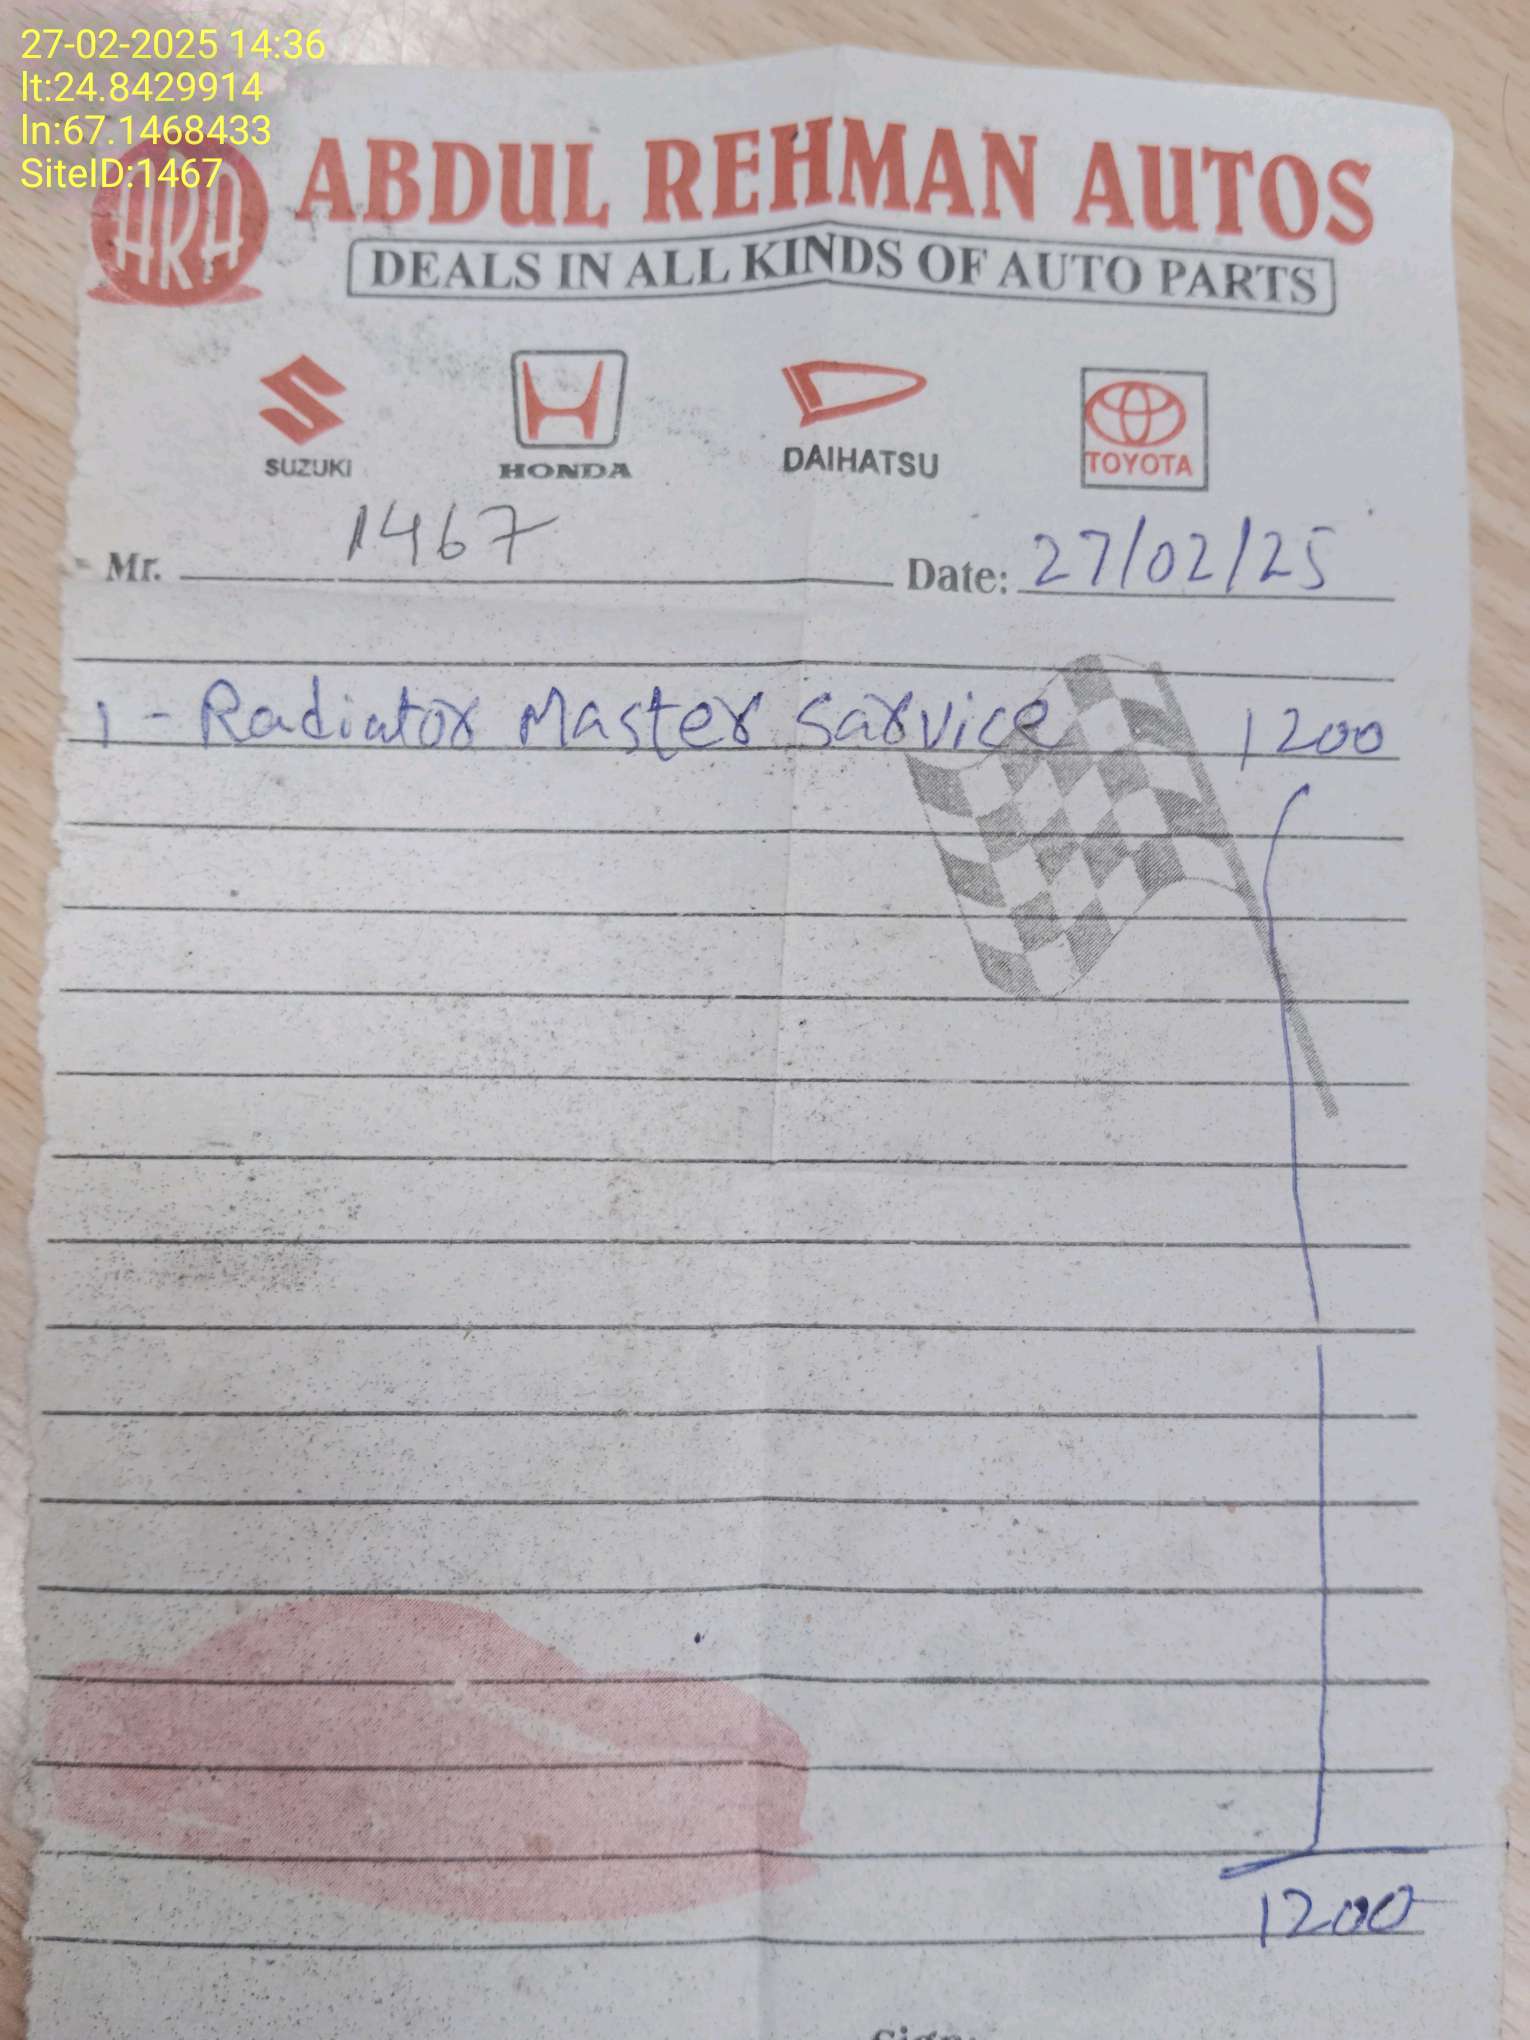 27-02-2025 14:36
lt:24.8429914
ln:67.1468433
SiteID:1467
ARA
ABDUL REHMAN AUTOS
DEALS IN ALL KINDS OF AUTO PARTS
SUZUKI HONDA DAIHATSU TOYOTA
Mr. 1467 Date: 27/02/25
1 - Radiator Master Sarvice 1200
1200
Sign: